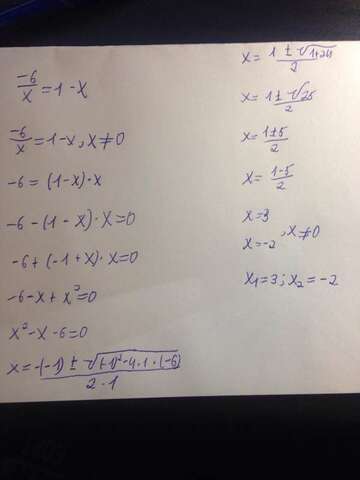 -6/x = 1 - x
-6/x = 1 - x, x ≠ 0
-6 = (1 - x) · x
-6 - (1 - x) · x = 0
-6 + (-1 + x) · x = 0
-6 - x + x² = 0
x² - x - 6 = 0
x = -(-1) ± √(+1)² - 4 · 1 · (-6) / 2 · 1
x = 1 ± √1+24 / 2
x = 1 ± √25 / 2
x = 1±5 / 2
x = 1-5 / 2
x = 3
x = -2, x ≠ 0
x₁ = 3; x₂ = -2